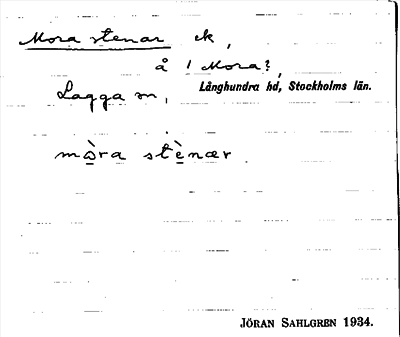 Mora stenar ek,
å 1 Mora?,
Lagga sn, Långhundra hd, Stockholms län.
mòra stènær
JÖRAN SAHLGREN 1934.